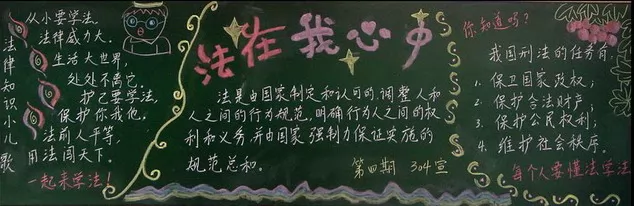 法律知识儿歌
从小要学法,
法律威力大。
生活大世界,
处处不离它。
护己要学法,
保护你我他。
法前人平等,
用法闯天下。
一起来学法!
法在我心中
法是由国家制定和认可的调整人和
人之间的行为规范,明确行为人之间的权
利和义务,并由国家强制力保证实施的
规范总和。
第四期 304宣
你知道吗?
我国刑法的任务有:
1. 保卫国家政权;
2. 保护合法财产;
3. 保护公民权利;
4. 维护社会秩序。
每个人要懂法学法